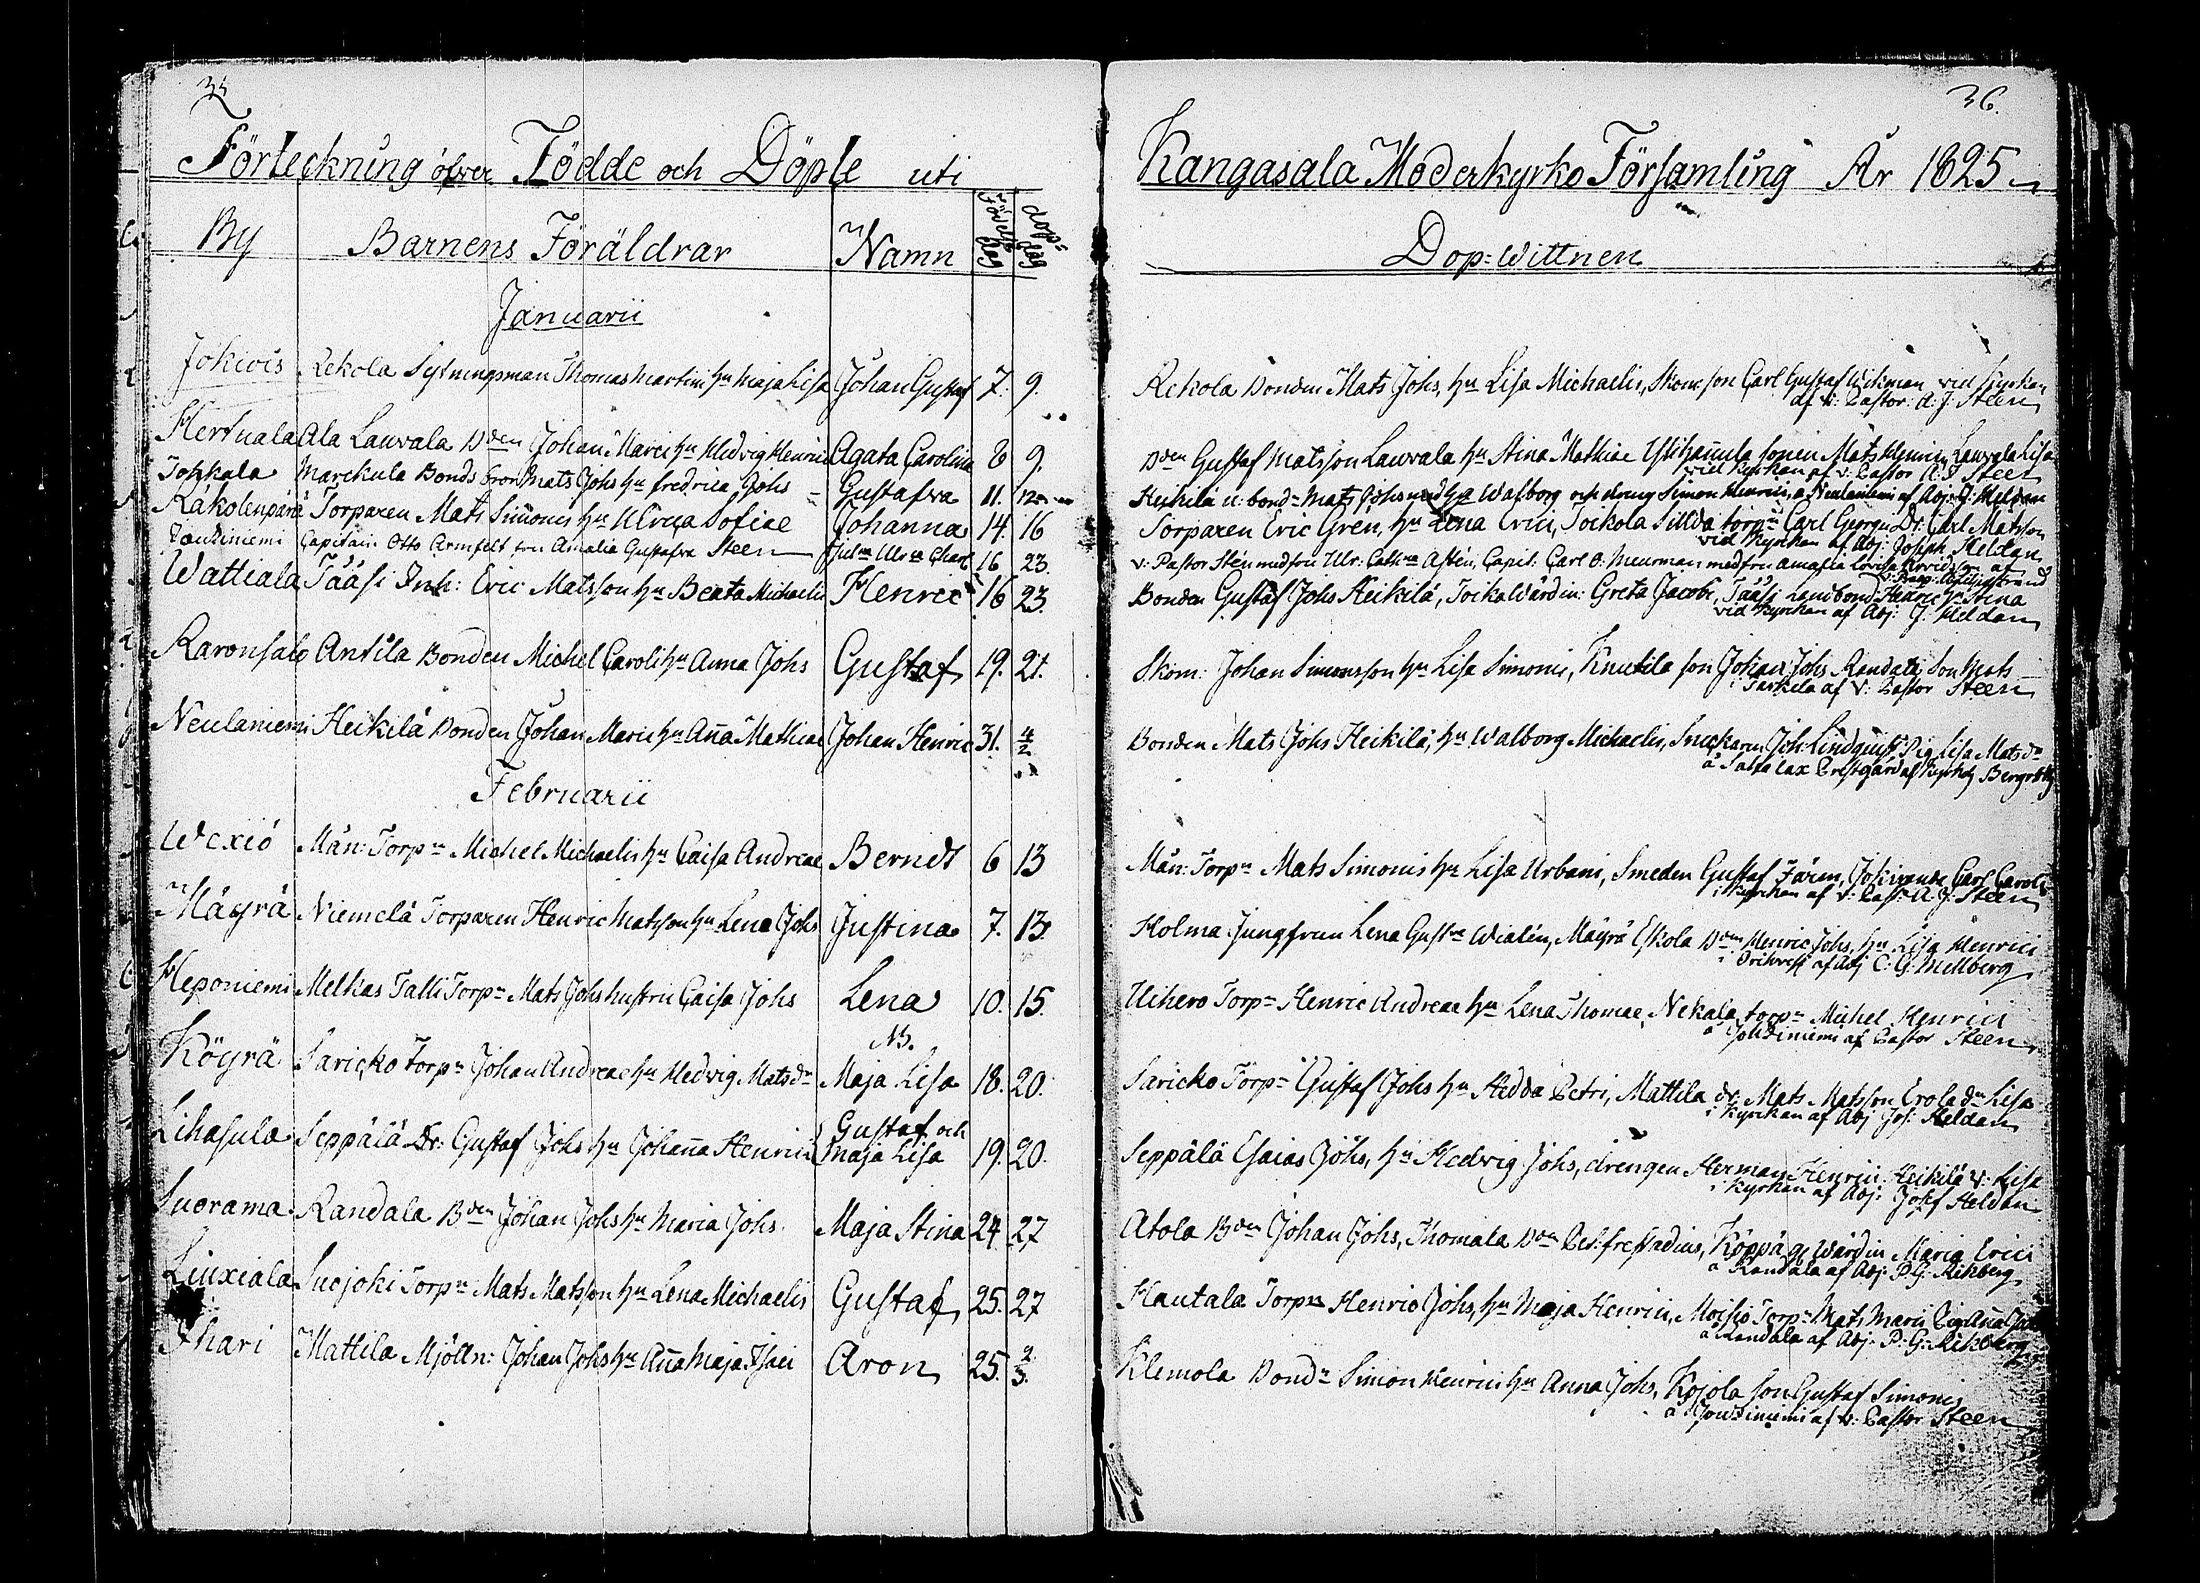 35
Förteckning öfver Födde och Döpte uti
By Barnens Föräldrar Namn Födelse dag dop= dag
Januarii
Jokiois Rekola Sytningsman Thomas Martini hu Maja Lisa Johan Gustaf 7. 9.
Hertuala Ala Lauvala Bden Johan Marci hu Hedvig Henrici Agata Carolina 8 9.
Tohkala Marckula Bonds bror Mats Johs hu fredrica Johs Gustafva 11. 12
Rakolenpärä Torparen Mats Simonis hu Ulrica Sofiae Johanna 14. 16
Jouxiniemi Capitain Otto Armfelt fru Amalia Gustafva Steen Ulr Charl 16 23.
Wattiala Tääsi Inh: Eric Matsson hu Beata Michaelis Henric 16 23.
Raronsalo Antila Bonden Michel Caroli hu Anna Johs Gustaf 19. 21.
Neulaniemi Heikilä Bonden Johan Marci hu Aña Mathiae Johan Henric 31. 4/2
Februarii
Wexiö Män: Torpn Michel Michaelis hu Caisa Andreae Berndt 6 13
Mäyrä Niemelä Torparen Henric Matsson hu Lena Johs Justina 7. 13.
Heponiemi Melkas Talli Torpn Mats Johs hustru Caisa Johs Lena 10. 15.
NB.
Köyrä Saricko Torpn Johan Andreae hu Hedvig Matsdr Maja Lisa 18. 20.
Lihasula Seppälä Dr: Gustaf Johs hu Johaña Henrici Gustaf och Maja Lisa 19. 20.
Suorama Randala Bden Johan Johs hu Maria Johs Maja Stina 24 27
Liuxiala Suojoki Torpn Mats Matsson hu Lena Michaelis Gustaf 25. 27
Ihari Mattila Mjölln: Johan Johs hu Aña Maja Isaci Aron 25. 2/3.
36.
Kangasala Moderkyrko Församling År 1825
Dop=Wittnen
Rekola Bonden Mats Johs, hu Lisa Michaelis, Skom. son Carl Gustaf Wikman vid Kyrkan
af v: Pastor: A. J: Steen
Bden Gustaf Matsson Lauvala hu Stina Mathiae Ylihañula sonen Mats Henrici, Lauvala Lisa
vid Kyrkan af v: Pastor A: J Steen
Heikilä u: bond= Mats Johs med hu Walborg och dreng Simon Henrici, a Neulaniemi af Adj: J: Heldan
Torparen Eric Gren, hu Lena Erici, Toikola torpn Carl Georgii Dr. Carl Matsson
vid Kyrkan af Adj: Joseph Heldan
v: Pastor Steen med fru Ulr: Cath:na Astén, Capit: Carl O: Meurman med fru Amalia Lovisa Arvidson af
Bonden Gustaf Johs Heikilä, Toika Wärdin: Greta Jacobi, Tääsi Landbond: Henric hu Stina
vid Kyrkan af Adj: J: Heldan
Skom: Johan Simonsson hu Lisa Simonis, Knutila son Johan Johs Randala son Mats
i Tarkila af V: Pastor Steen
Bonden Mats Johs Heikilä, hu Walborg Michaelis, Snickaren Joh: Lindquist Pig Lisa Matsdr
a Prestgård af Kyrkoh Bergroth
Män: Torpn Mats Simonis hu Lisa Urbani, Smeden Gustaf Färm, Carl Caroli
i Kyrkan af v: Past: A: J: Steen
Holma Jungfrun Lena Gustva Wialén, Mäyrä Eskola Bden Henric Johs, hu Lisa Henrici
i Orihvesi af Adj C: G: Mellberg
Uihero Torpn Henric Andreae hu Lena Thomae, Nekala torpn Michel Henrici
a Jouxiniemi af Pastor Steen
Saricko Torpn Gustaf Johs hu Hedda Petri, Mattila dr. Mats Matsson Erola dr Lisa
i Kyrkan af Adj Jos: Heldan
Seppälä Esaias Johs, hu Hedvig Johs, drengen Herman Henrici Heikilä v: Lisa
i Kyrkan af Adj: Josef Heldan
Atola Bden Johan Johs, Thomala Bden Pet: fressadius, Wärdin Maria Erici
a Randala af Adj: P: G: Rikberg
Hautala Torpn Henric Johs, hu Maja Henrici, Moisio Torpn Mats Marci Pig Aña
a Randala af Adj: P: G: Rikberg
Klemola Bondn Simon Henrici hu Anna Johs, Kojola son Gustaf Simonis
a Jouxiniemi af v: Pastor Steen